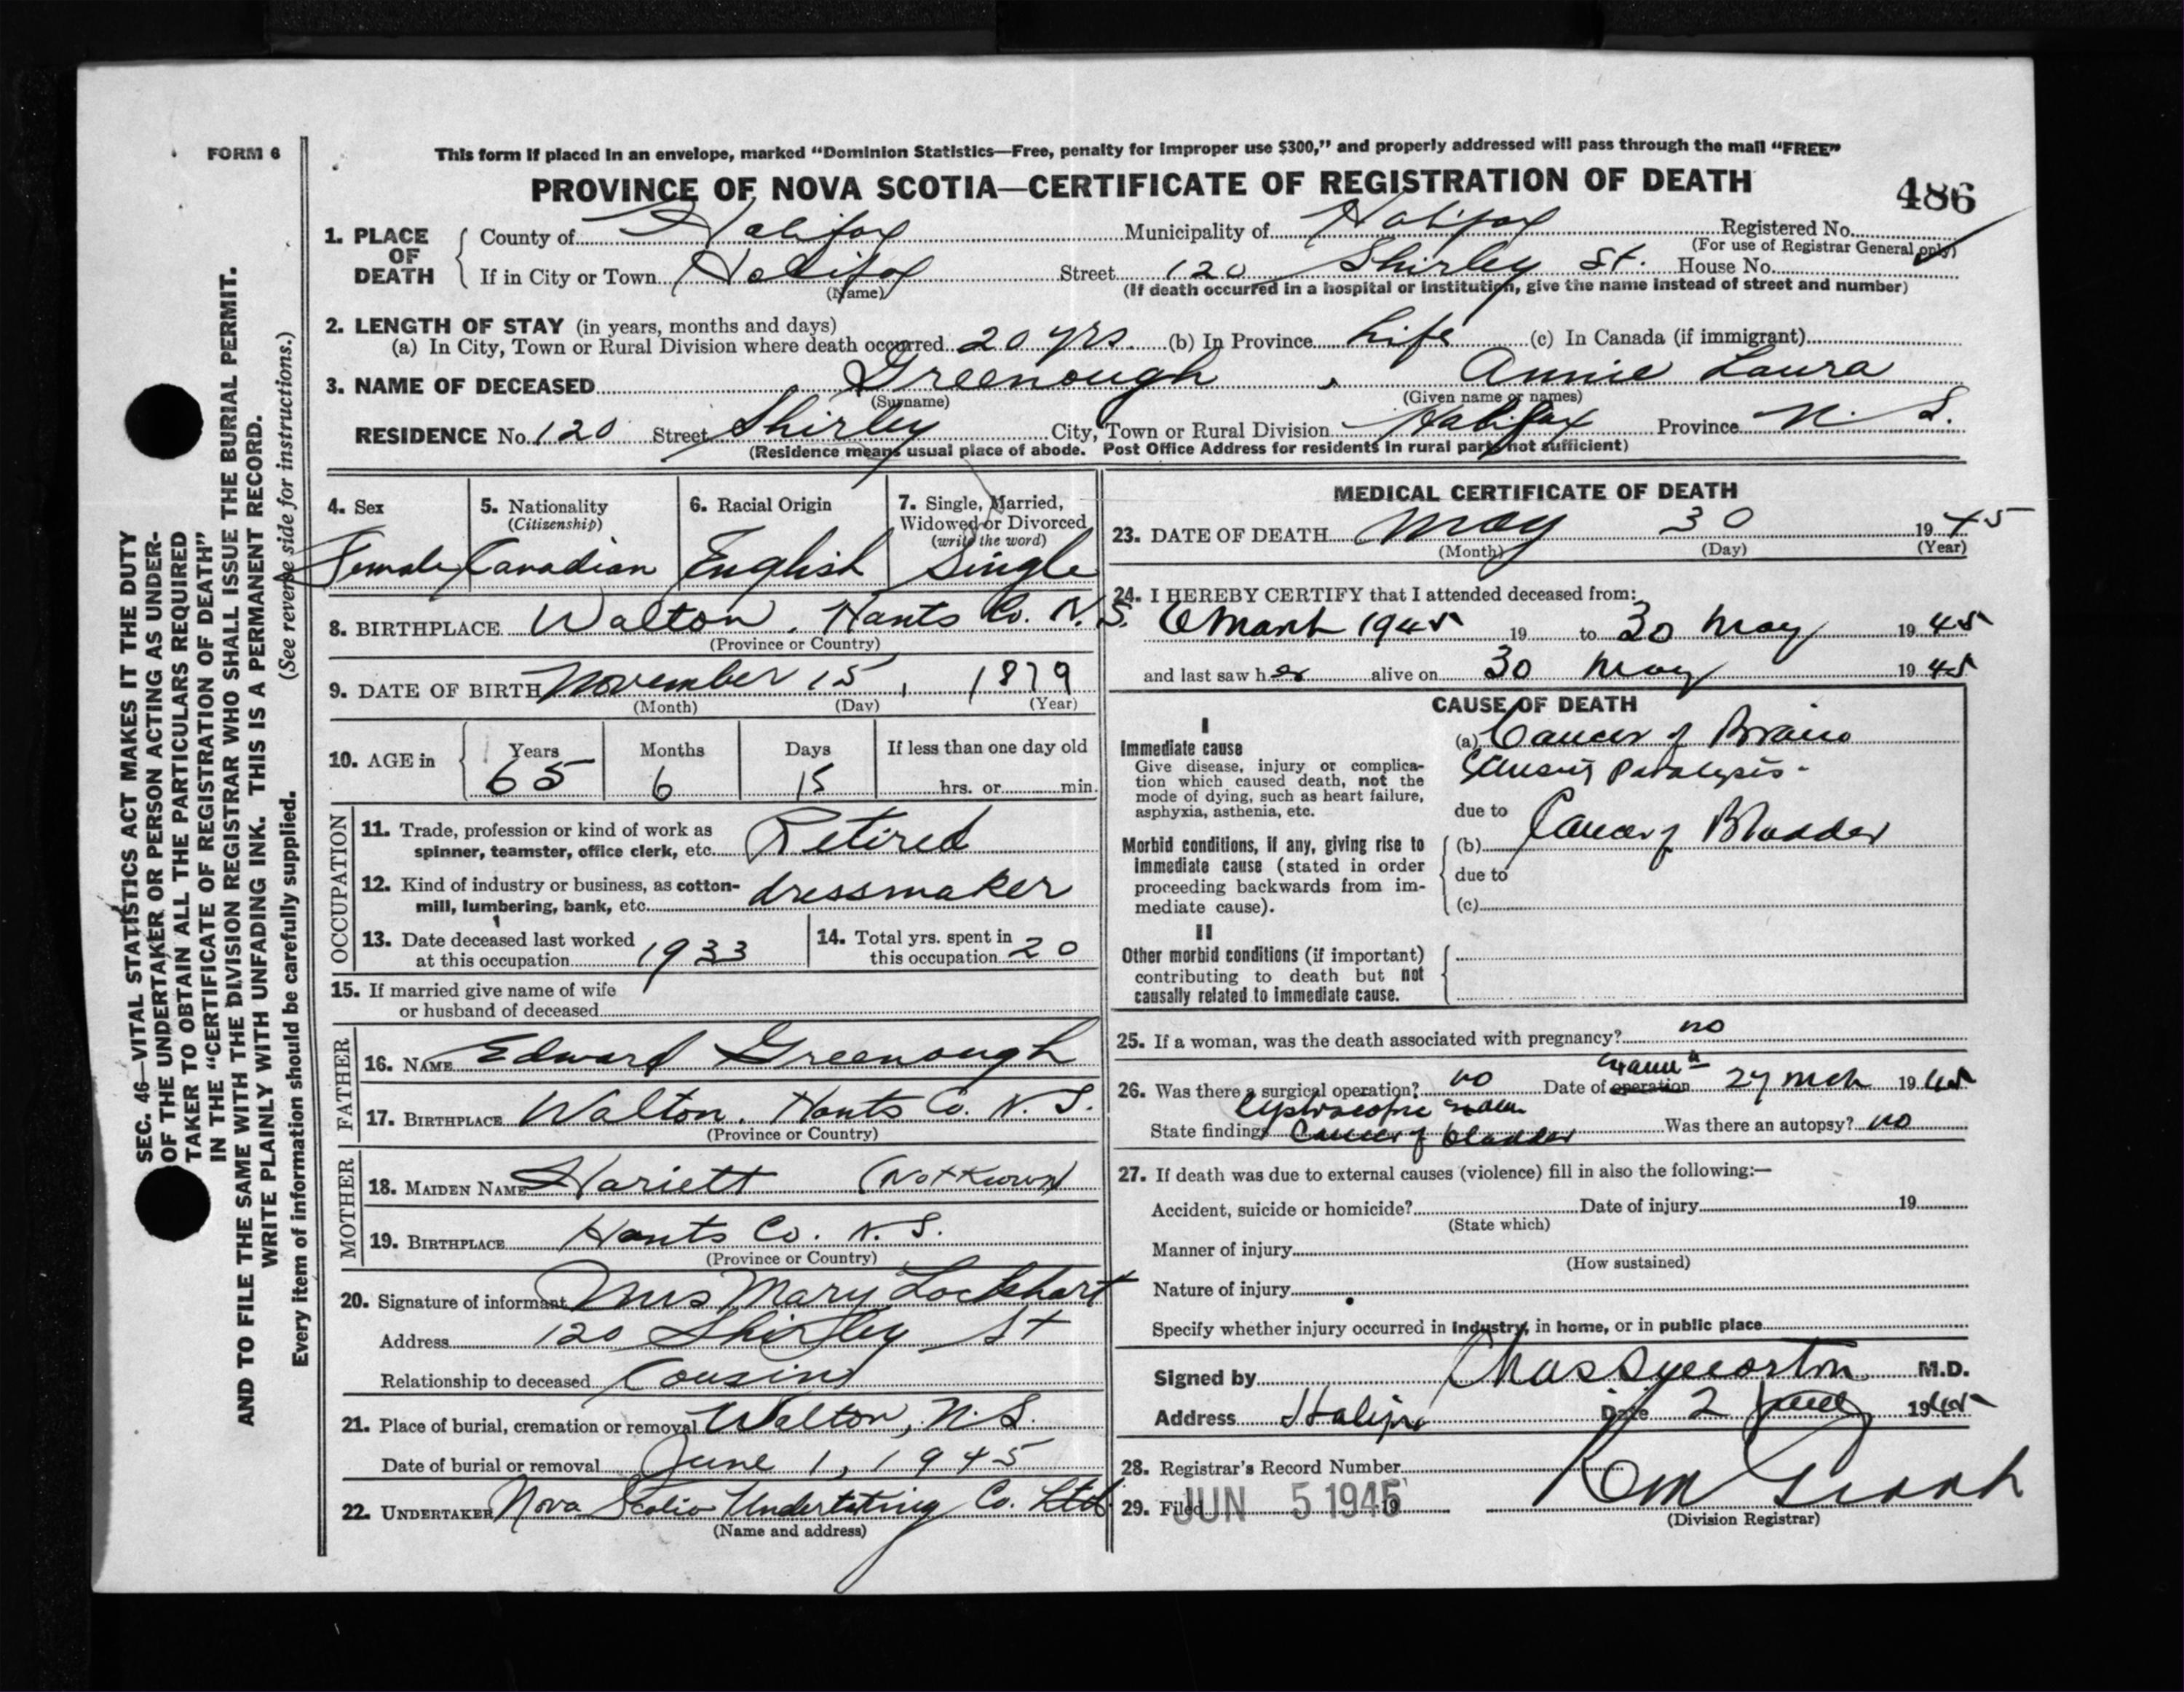 FORM 6
This form if placed in an envelope, marked “Dominion Statistics—Free, penalty for improper use $300,” and properly addressed will pass through the mail “FREE”
PROVINCE OF NOVA SCOTIA—CERTIFICATE OF REGISTRATION OF DEATH
486
1. PLACE OF DEATH
County of Halifax Municipality of Halifax Registered No.
(For use of Registrar General only)
If in City or Town Halifax Street 120 Shirley St. House No.
(Name) (If death occurred in a hospital or institution, give the name instead of street and number)
2. LENGTH OF STAY (in years, months and days)
(a) In City, Town or Rural Division where death occurred 20 yrs. (b) In Province Life (c) In Canada (if immigrant)
3. NAME OF DECEASED Greenough, Annie Laura
(Surname) (Given name or names)
RESIDENCE No. 120 Street Shirley City, Town or Rural Division Halifax Province N.S.
(Residence means usual place of abode. Post Office Address for residents in rural parts not sufficient)
4. Sex
Female
5. Nationality
(Citizenship)
Canadian
6. Racial Origin
English
7. Single, Married,
Widowed or Divorced
(write the word)
Single
8. BIRTHPLACE Walton, Hants Co. N.S.
(Province or Country)
9. DATE OF BIRTH November 15, 1879
(Month) (Day) (Year)
10. AGE in
Years Months Days If less than one day old
65 6 15 hrs. or min.
OCCUPATION
11. Trade, profession or kind of work as
spinner, teamster, office clerk, etc. Retired
12. Kind of industry or business, as cotton-
mill, lumbering, bank, etc. dressmaker
13. Date deceased last worked
at this occupation 1933
14. Total yrs. spent in
this occupation 20
15. If married give name of wife
or husband of deceased
FATHER
16. NAME Edward Greenough
17. BIRTHPLACE Walton, Hants Co. N.S.
(Province or Country)
MOTHER
18. MAIDEN NAME Hariett (Not Known)
19. BIRTHPLACE Hants Co. N.S.
(Province or Country)
20. Signature of informant Mrs Mary Lockhart
Address 120 Shirley St
Relationship to deceased Cousin
21. Place of burial, cremation or removal Walton, N.S.
Date of burial or removal June 1, 1945
22. UNDERTAKER Nova Scotia Undertaking Co. Ltd
(Name and address)
MEDICAL CERTIFICATE OF DEATH
23. DATE OF DEATH May 30 1945
(Month) (Day) (Year)
24. I HEREBY CERTIFY that I attended deceased from:
1945 19 to 30 May 1945
and last saw her alive on 30 May 1945
CAUSE OF DEATH
I
Immediate cause
Give disease, injury or complica-
tion which caused death, not the
mode of dying, such as heart failure,
asphyxia, asthenia, etc.
(a) Cancer of Brain
Paralysis.
due to
Morbid conditions, if any, giving rise to
immediate cause (stated in order
proceeding backwards from im-
mediate cause).
(b) Cancer of Bladder
due to
(c)
II
Other morbid conditions (if important)
contributing to death but not
causally related to immediate cause.
25. If a woman, was the death associated with pregnancy? no
26. Was there a surgical operation? no Date of operation 27 Mch 1945
State findings Cancer of bladder Was there an autopsy? no
27. If death was due to external causes (violence) fill in also the following:—
Accident, suicide or homicide? Date of injury 19
(State which)
Manner of injury
(How sustained)
Nature of injury
Specify whether injury occurred in industry, in home, or in public place
Signed by M.D.
Address Halifax Date 2 1945
28. Registrar’s Record Number
29. Filed JUN 5 1945 19
(Division Registrar)
SEC. 46—VITAL STATISTICS ACT MAKES IT THE DUTY
OF THE UNDERTAKER OR PERSON ACTING AS UNDER-
TAKER TO OBTAIN ALL THE PARTICULARS REQUIRED
IN THE “CERTIFICATE OF REGISTRATION OF DEATH”
AND TO FILE THE SAME WITH THE DIVISION REGISTRAR WHO SHALL ISSUE THE BURIAL PERMIT.
WRITE PLAINLY WITH UNFADING INK. THIS IS A PERMANENT RECORD.
Every item of information should be carefully supplied. (See reverse side for instructions.)